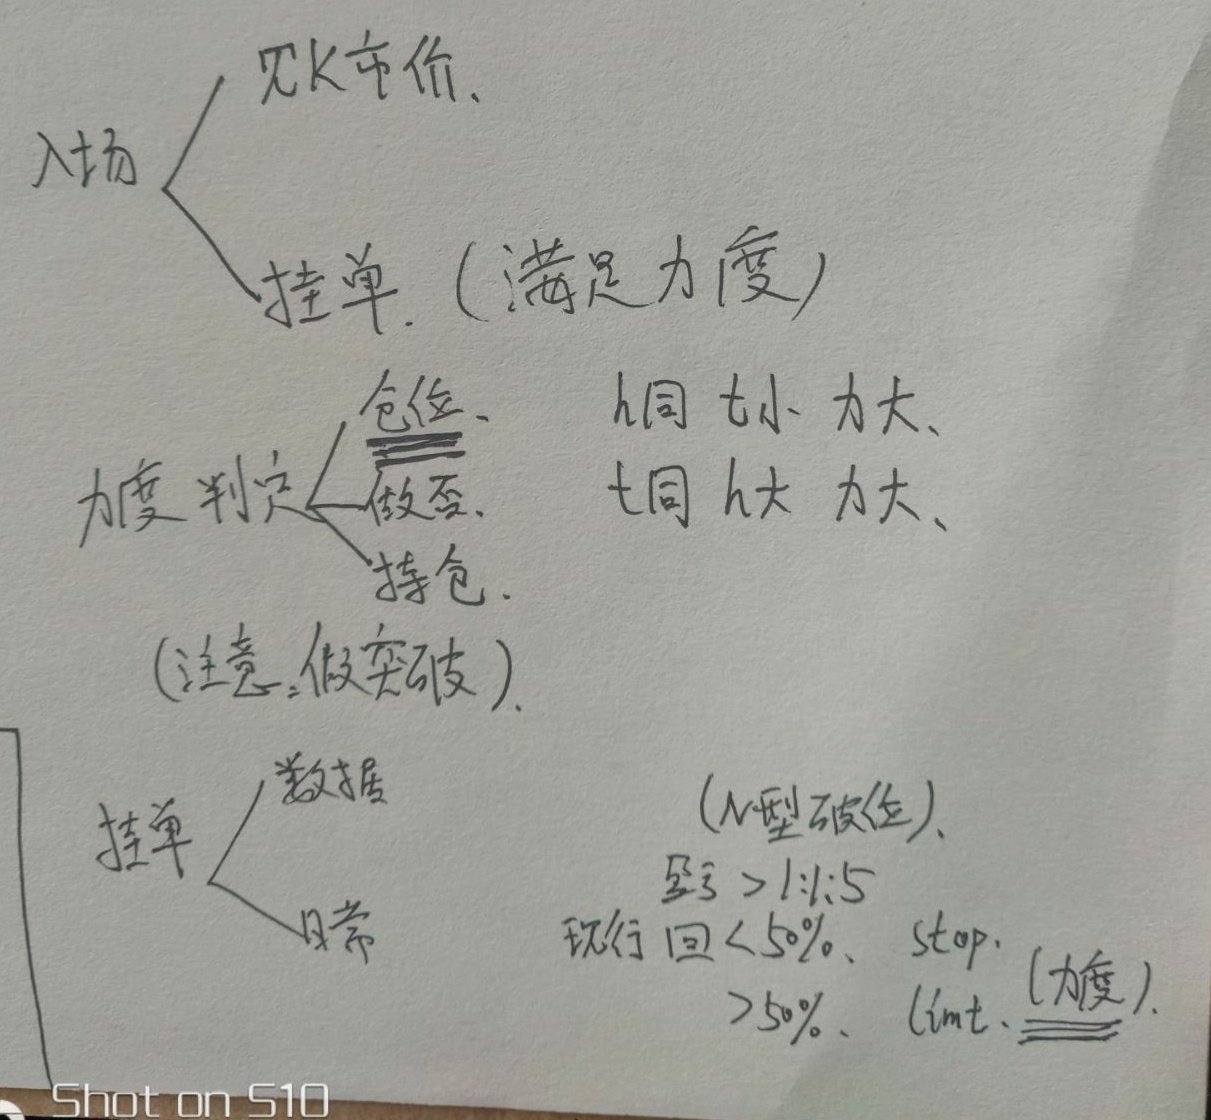 K市价、
入场
挂单.(满足力度)
仓位、 h同 t小 力大、
力度判定 做否、 t同 h大 力大、
持仓.
(注意:做突破)、
数据
挂单
日常
(N型破位)、
盈亏>1:1.5
现行回<50%、 stop.
>50%、 limt. (力度).
Shot on S10